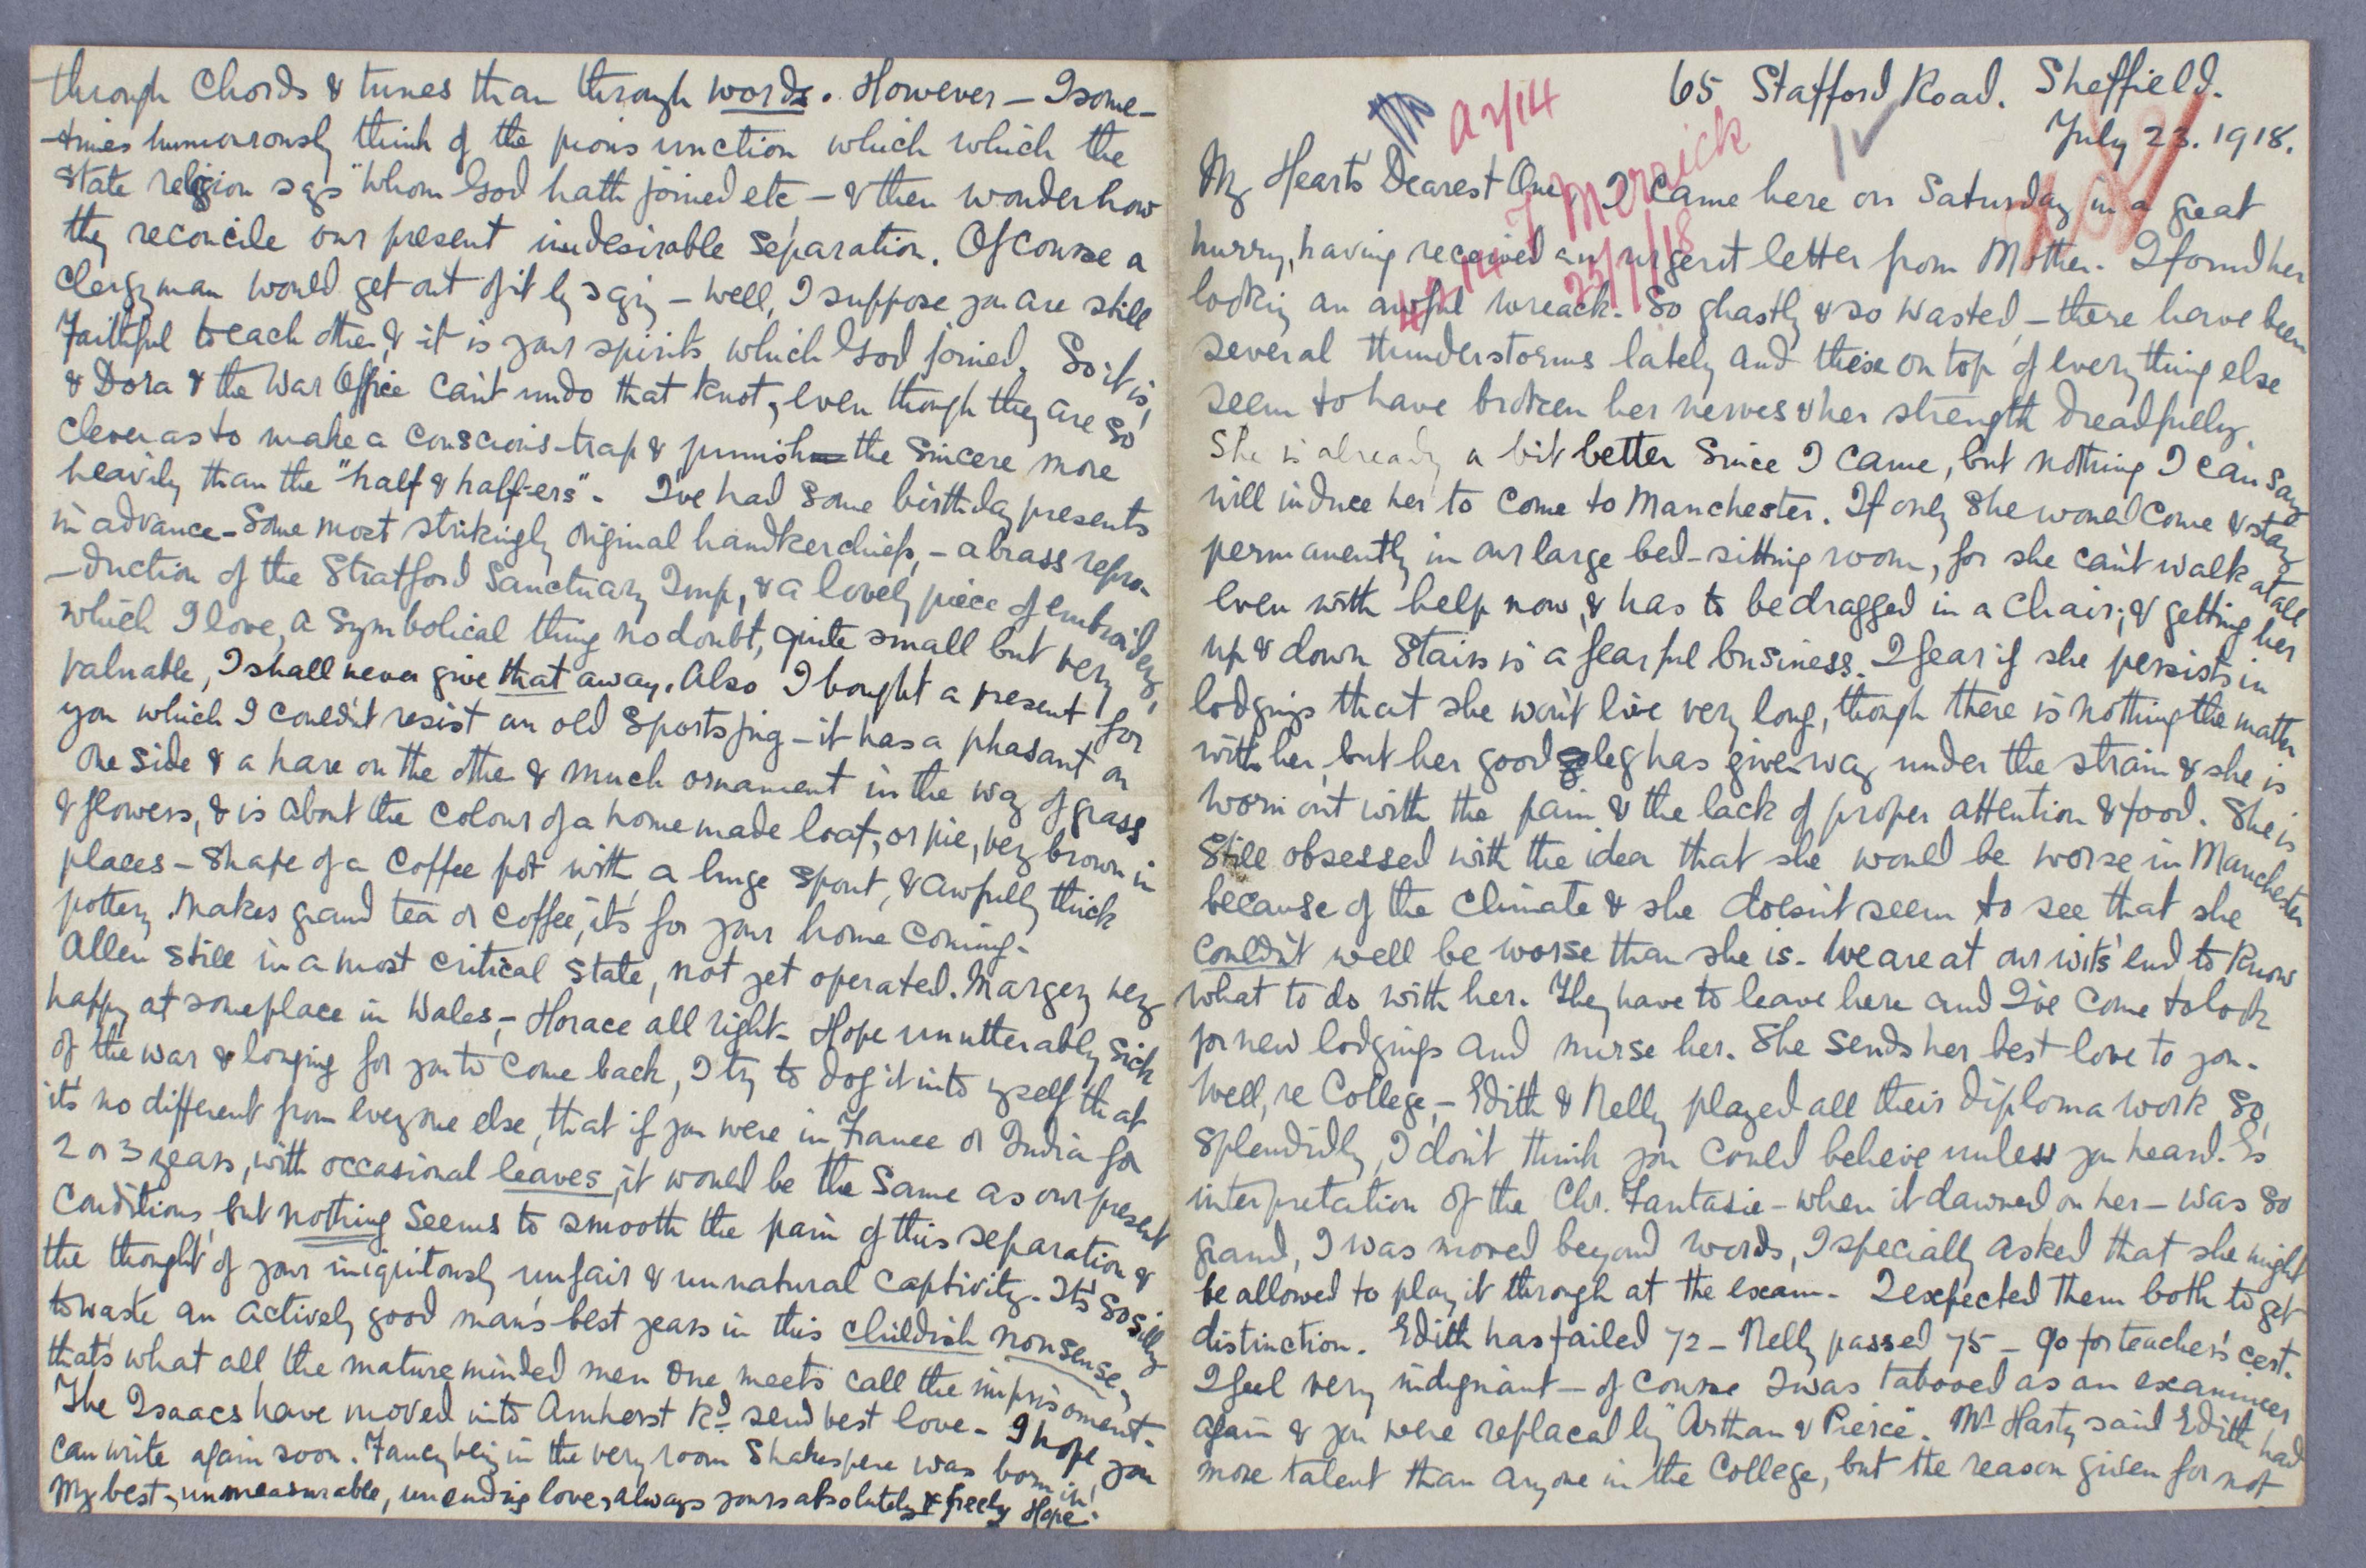 65 Stafford Road. Sheffield.
July 23. 1918.
a2/14
F Merrick
25/7/18
My Heart's Dearest One, I came here on Saturday in a great
hurry, having received an urgent letter from Mother. I found her
looking an awful wreack. So ghastly & so wasted, – there have been
several thunderstorms lately and these on top of everything else
seem to have broken her nerves & her strength dreadfully.
She is already a bit better since I came, but nothing I can say
will induce her to come to Manchester. If only she would come & stay
permanently in our large bed-sitting room, for she can't walk at all
even with help now, & has to be dragged in a chair; & getting her
up & down stairs is a fearful business. I fear if she persists in
lodgings that she won't live very long, though there is nothing the matter
with her, but her good leg has given way under the strain & she is
worn out with the pain & the lack of proper attention & food. She is
still obsessed with the idea that she would be worse in Manchester
because of the climate & she doesn't seem to see that she
couldn't well be worse than she is. We are at our wits' end to know
what to do with her. They have to leave here and I've come to look
for new lodgings and nurse her. She sends her best love to you.
Well, re College, – Edith & Nelly played all their diploma work so
splendidly, I don't think you could believe unless you heard. E's
interpretation of the Chr. Fantasie – when it dawned on her – was so
grand, I was moved beyond words, I specially asked that she might
be allowed to play it through at the exam. I expected them both to get
distinction. Edith has failed 72 – Nelly passed 75 – 90 for teacher's cert.
I feel very indignant – of course I was tabooed as an examiner
again & you were replaced by "Arthan & Pierce". Mr Harty said Edith had
more talent than anyone in the College, but the reason given for not
through Chords & tunes than through words. However – I some-
-times humourously think of the pious unction which which the
state religion says "whom God hath joined etc – & then wonder how
they reconcile our present undesirable separation. Of course a
Clergyman would get out of it by saying – well, I suppose you are still
faithful to each other, & it is your spirits which God joined. So it is,
& Dora & the War Office can't undo that knot, even though they are so
clever as to make a conscious-trap & punish the sincere more
heavily than the "half & half-ers". I've had some birthday presents
in advance – Some most strikingly original handkerchiefs, – a brass repro-
-duction of the Stratford Sanctuary Imp, & a lovely piece of embroidery,
which I love, a symbolical thing no doubt, quite small but very
valuable, I shall never give that away. Also I bought a present for
you which I couldn't resist an old sports jug – it has a phasant on
one side & a hare on the other & much ornament in the way of grass
& flowers, & is about the colour of a home made loaf, or pie, very brown in
places – shape of a coffee pot with a huge spout, & awfully thick
pottery. Makes grand tea or coffee, it's for your home coming.
Allen still in a most critical state, not yet operated. Margery very
happy at someplace in Wales, – Horace all right – Hope unutterably sick
of the war & longing for you to come back, I try to dog it into myself that
it's no different from everyone else, that if you were in France or India for
2 or 3 years, with occasional leaves, it would be the same as our present
conditions, but nothing seems to smooth the pain of this separation &
the thought of your iniquitously unfair & unnatural captivity. It's so silly
to waste an actively good man's best years in this childish nonsense,
that's what all the mature minded men one meets call the imprisonment.
The Isaacs have moved into Amherst Rd. send best love – I hope you
can write again soon. Fancy being in the very room Shakespere was born in!
My best, unmeasurable, unending love, always yours absolutely & freely Hope.